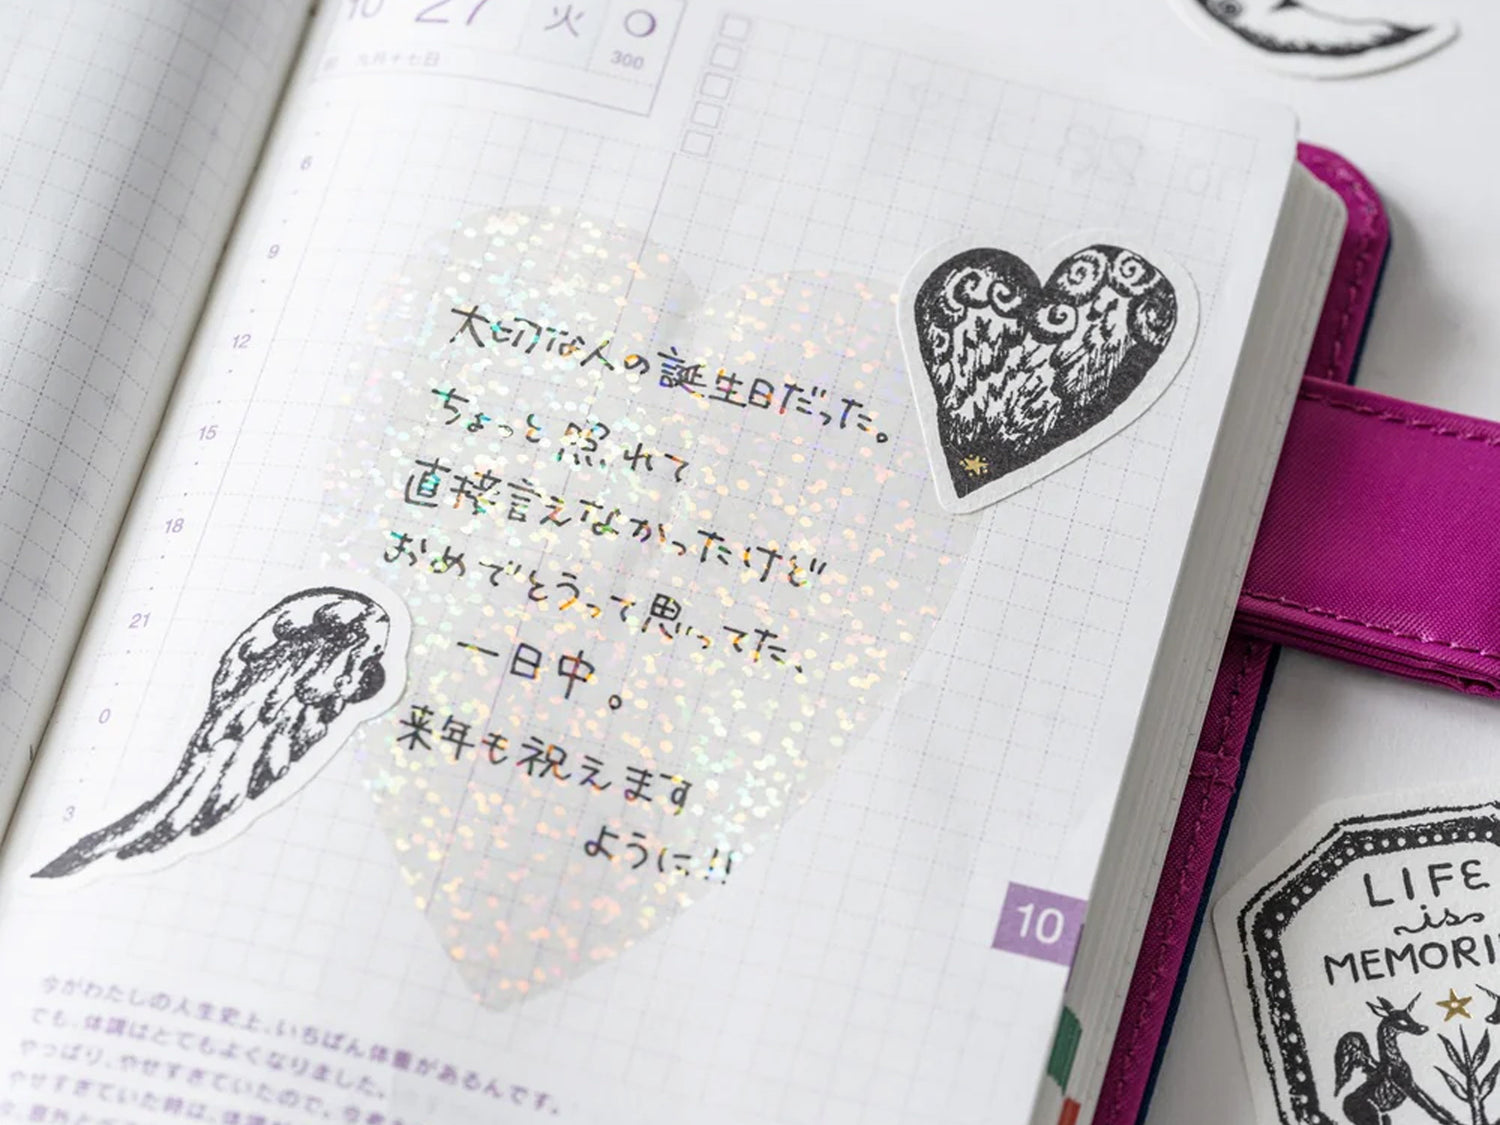 10 27 火
九月十七日 300
6
9
12
15
18
21
0
3
大切な人の誕生日だった。
ちょっと照れて
直接言えなかったけど
おめでとうって思ってた、
一日中。
来年も祝えます
ように!!
10
今がわたしの人生史上、いちばん体重があるんです。
でも、体調はとてもよくなりました。
やっぱり、やせすぎていたので、
やせすぎていた時は、体調が
LIFE
is
MEMORI